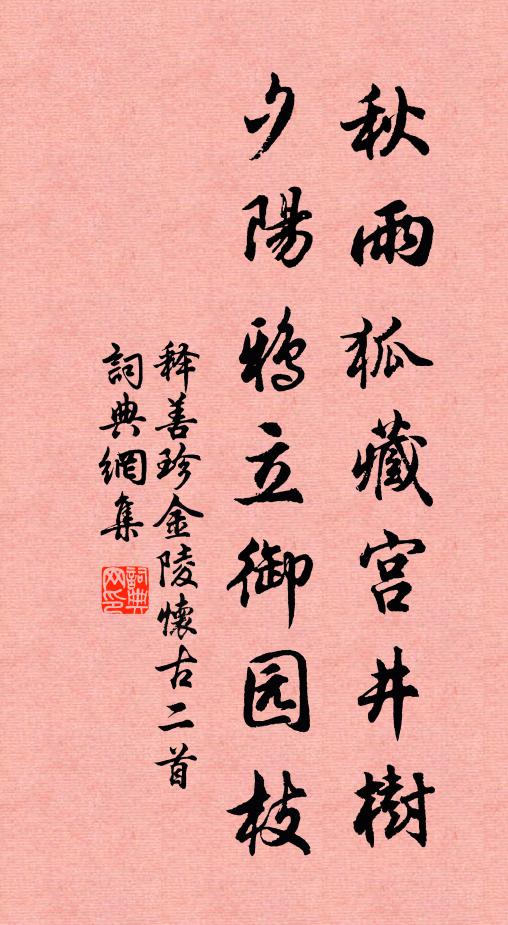 秋雨狐藏宫井樹
夕陽鴉立御园枝
释善珍金陵懷古二首
詞典網集
詞典网印